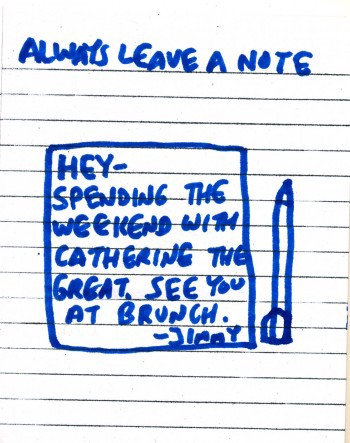 ALWAYS LEAVE A NOTE
HEY-
SPENDING THE
WEEKEND WITH
CATHERINE THE
GREAT. SEE YOU
AT BRUNCH.
-JIMMY